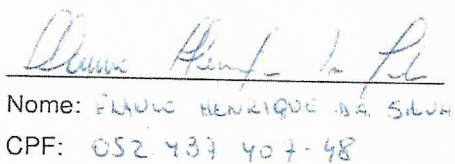 Nome: FLAVIO HENRIQUE DA SILVA
CPF: 052.437 407-48